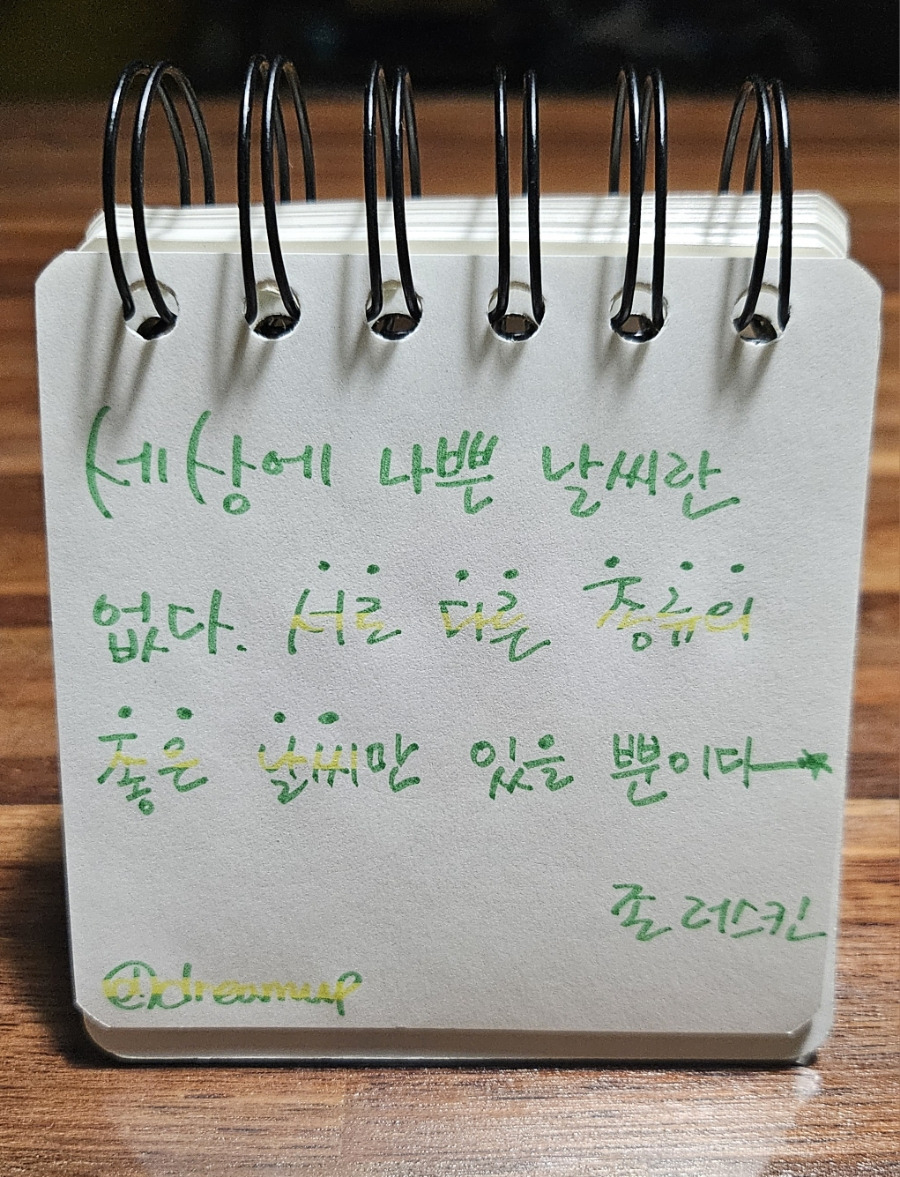 세상에 나쁜 날씨란
없다. 서로 다른 종류의
좋은 날씨만 있을 뿐이다
존 러스킨
@dreamup